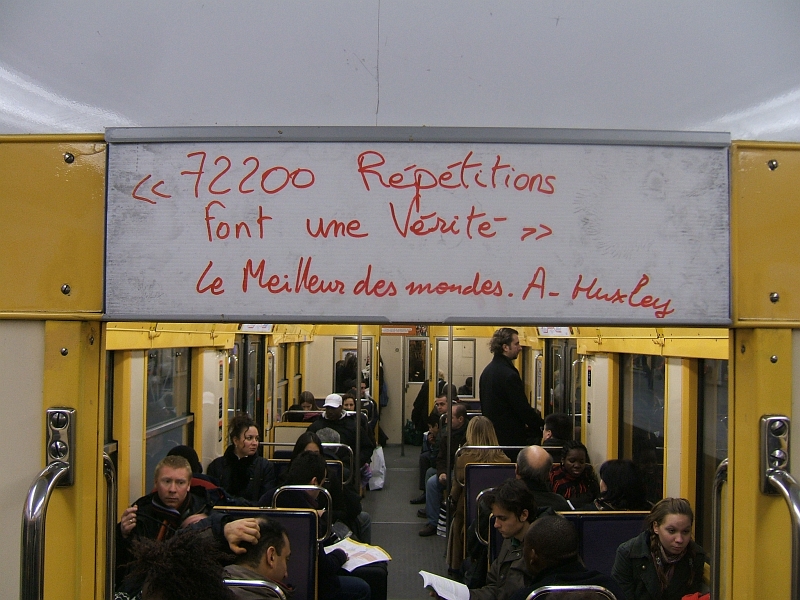 « 72200 Répétitions
font une Vérité »
Le Meilleur des mondes. A- Huxley